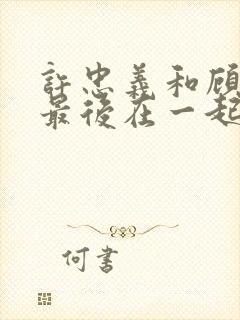 許忠義和顧
最後在一起
何書